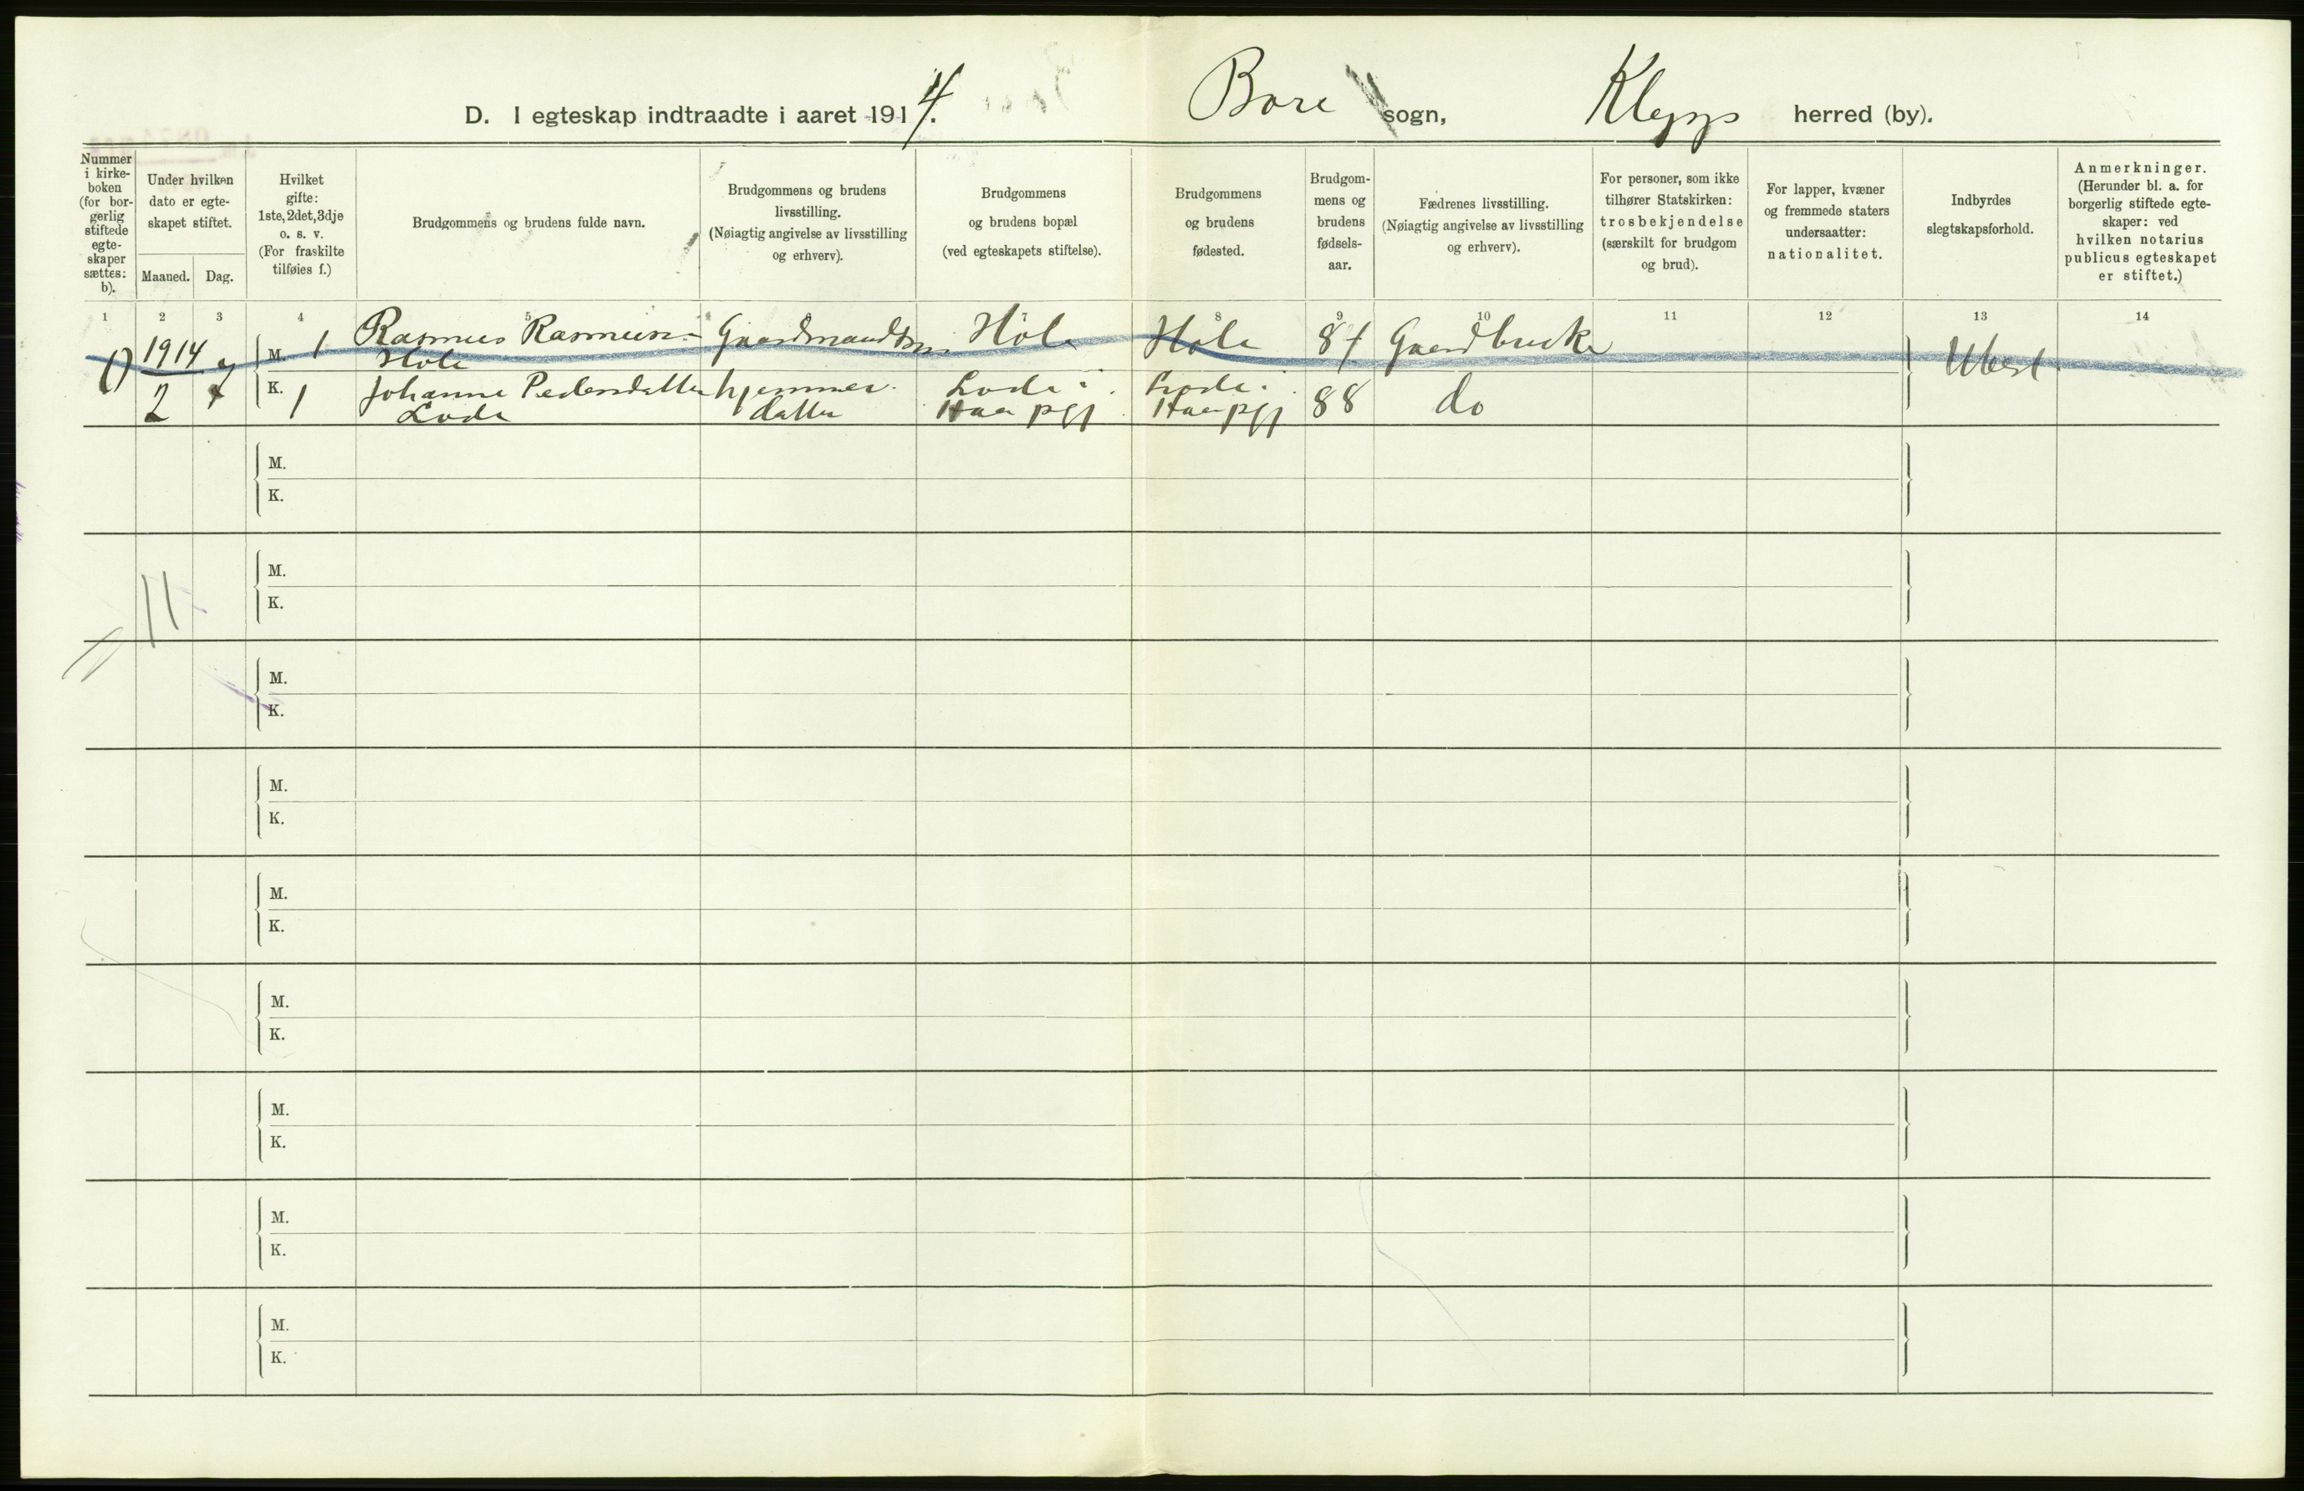 D. I egteskap indtraadte i aaret 1914. Bore sogn, Klepp herred (by).
Nummer i kirke-boken (for bor-gerlig stiftede egte-skaper sættes: b).
Under hvilken dato er egte-skapet stiftet.
Maaned. Dag.
Hvilket gifte: 1ste, 2det, 3dje o. s. v. (For fraskilte tilføies f.)
Brudgommens og brudens fulde navn.
Brudgommens og brudens livsstilling. (Nøiagtig angivelse av livsstilling og erhverv).
Brudgommens og brudens bopæl (ved egteskapets stiftelse).
Brudgommens og brudens fødested.
Brudgom-mens og brudens fødsels-aar.
Fædrenes livsstilling. (Nøiagtig angivelse av livsstilling og erhverv).
For personer, som ikke tilhører Statskirken: trosbekjendelse (særskilt for brudgom og brud).
For lapper, kvæner og fremmede staters undersaatter: nationalitet.
Indbyrdes slegtskapsforhold.
Anmerkninger. (Herunder bl. a. for borgerlig stiftede egte-skaper: ved hvilken notarius publicus egteskapet er stiftet.)
1 2 3 4 5 6 7 8 9 10 11 12 13 14
1) 1914 M. 1 Rasmus Rasmussen Gaardmandssøn Höle Höle 87 Gaardbruker Ubesl.
Höle
2 7 K. 1 Johanne Pedersdatter hjemmev. Lode i Lode i 88 do
Lode datter Haa pgj. Haa pgj
M.
K.
M.
11
K.
M.
K.
M.
K.
M.
K.
M.
K.
M.
K.
M.
K.
M.
K.